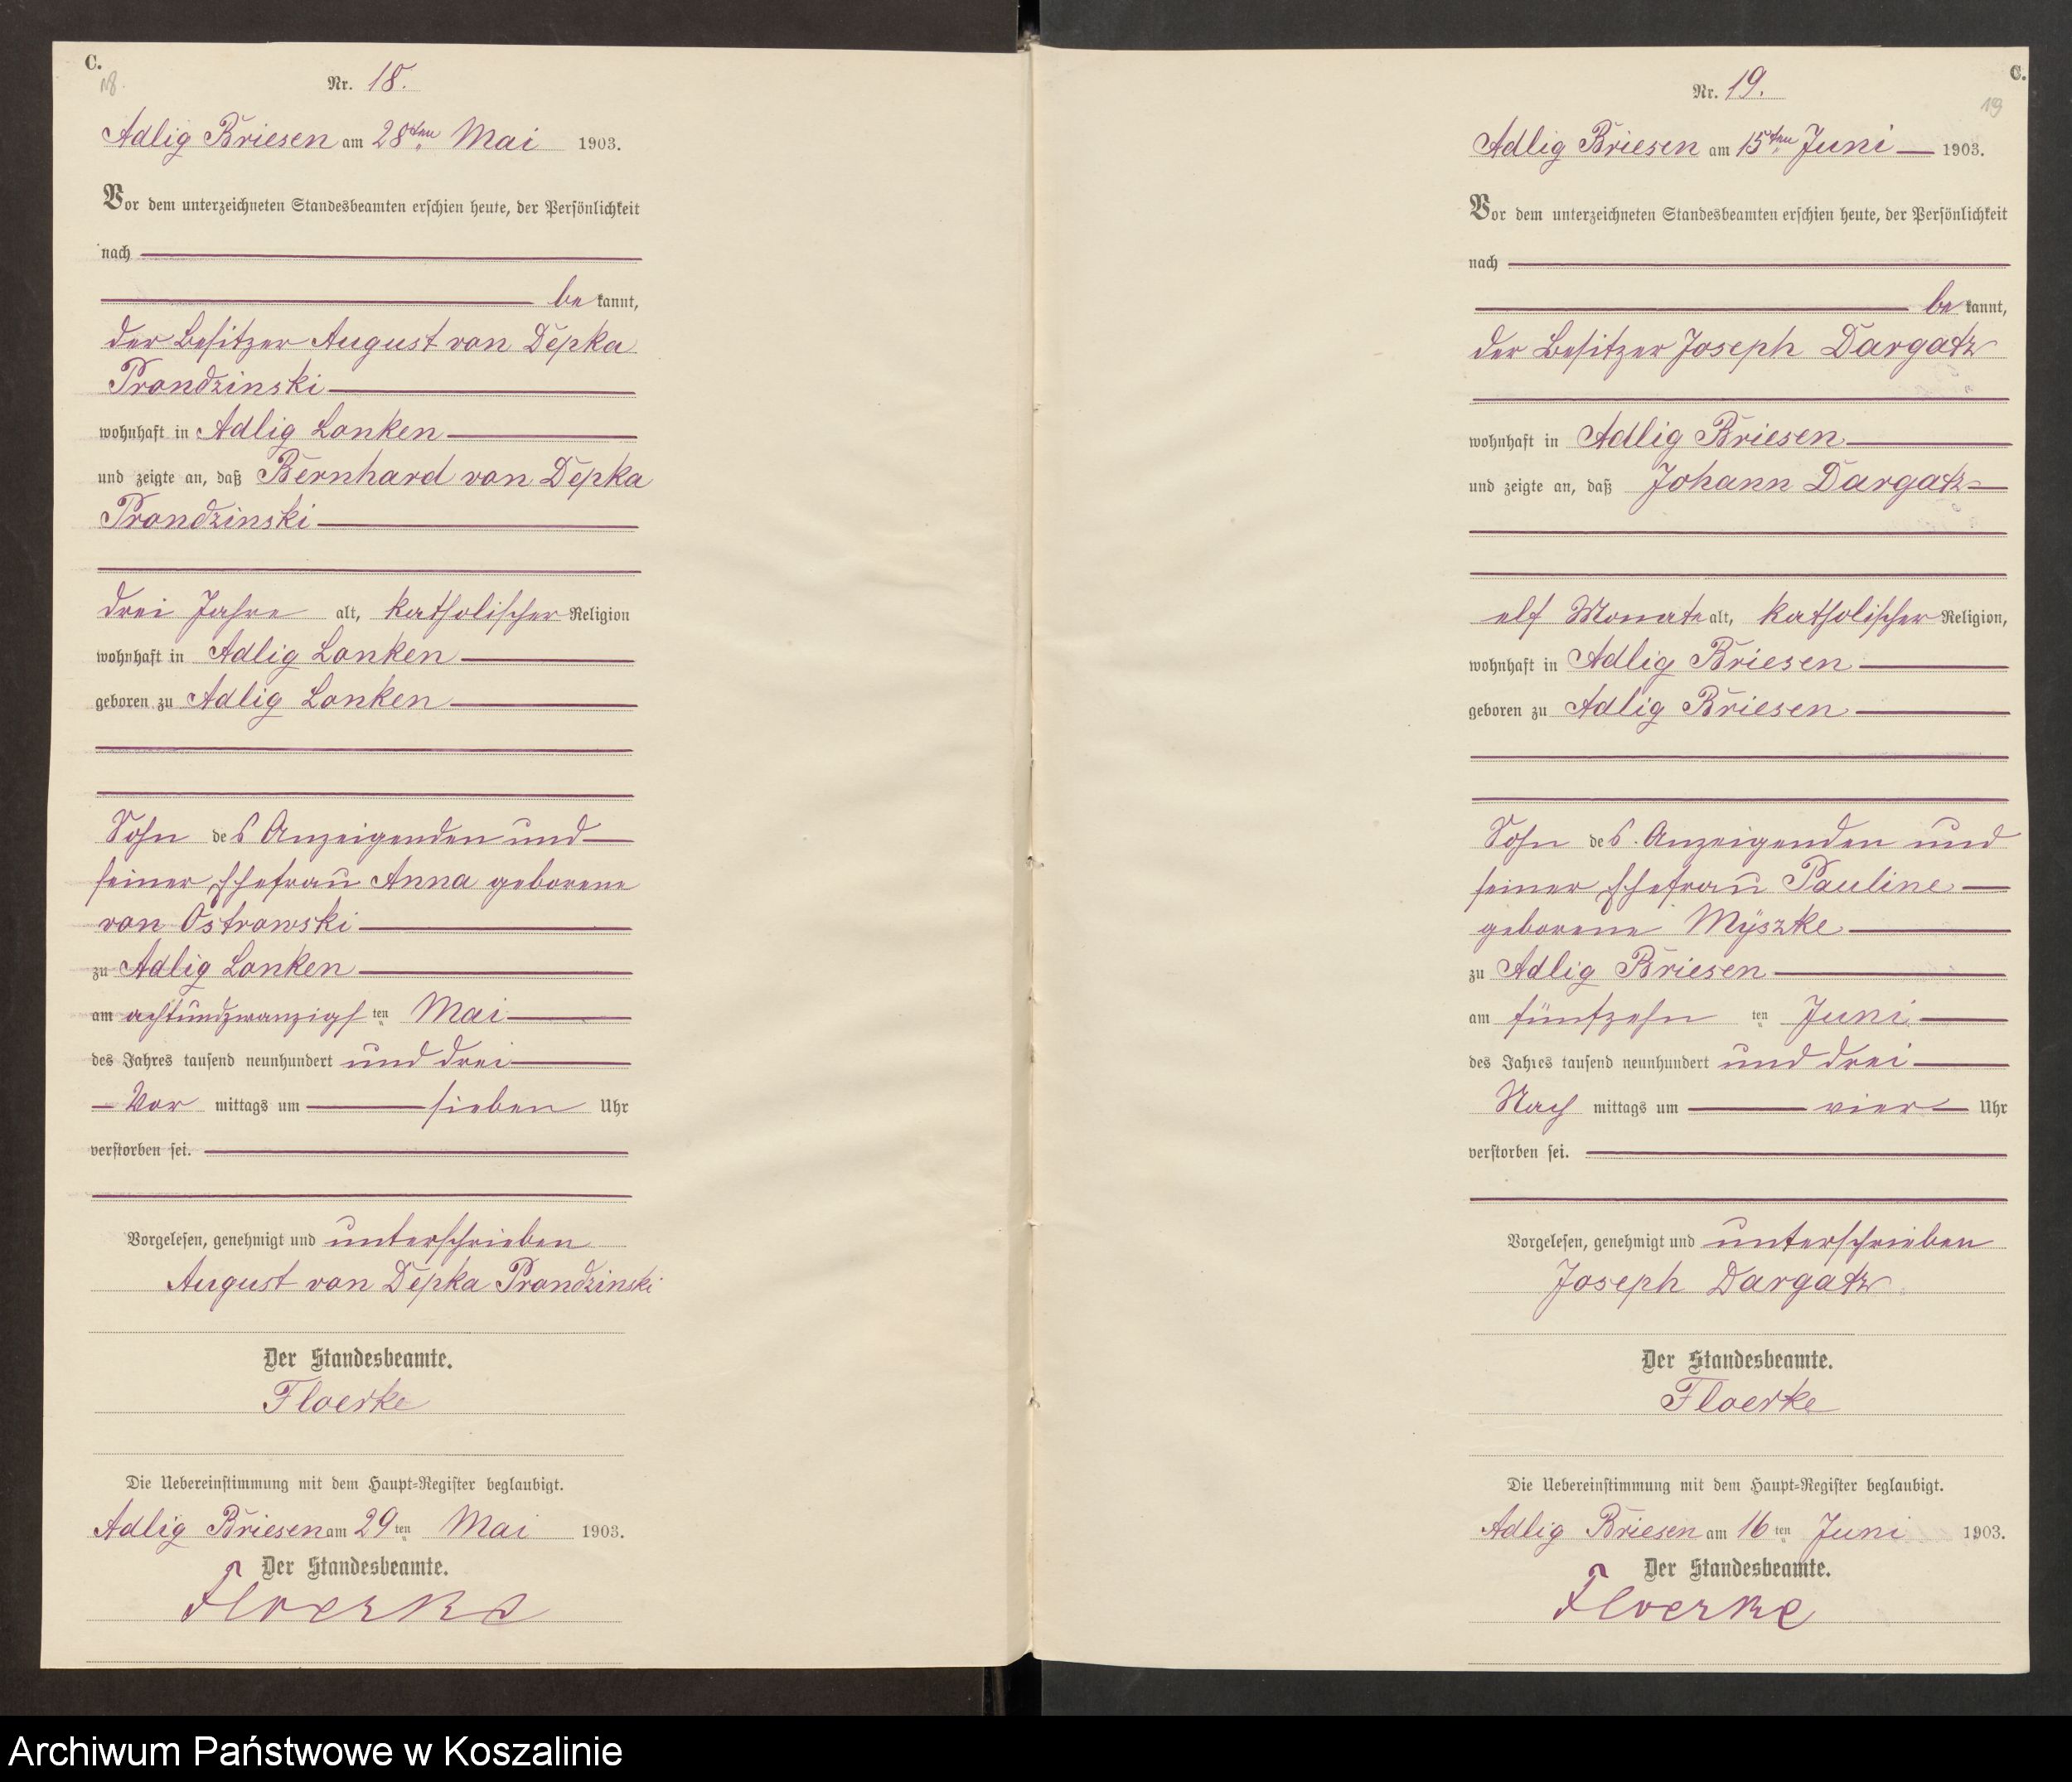 C.
18.
Nr. 18.
Adlig Briesen am 28ten Mai 1903.
Vor dem unterzeichneten Standesbeamten erschien heute, der Persönlichkeit
nach
be kannt,
der Besitzer August von Depka
Prondzinski
wohnhaft in Adlig Lonken
und zeigte an, daß Bernhard von Depka
Prondzinski
drei Jahre alt, katholischer Religion
wohnhaft in Adlig Lonken
geboren zu Adlig Lonken
Sohn des Anzeigenden und
seiner Ehefrau Anna geborene
von Ostrowski
zu Adlig Lonken
am achtundzwanzigsten Mai
des Jahres tausend neunhundert und drei
Vor mittags um sieben Uhr
verstorben sei.
Vorgelesen, genehmigt und unterschrieben
August von Depka Prondzinski
Der Standesbeamte.
Floerke
Die Uebereinstimmung mit dem Haupt-Register beglaubigt.
Adlig Briesen am 29ten Mai 1903.
Der Standesbeamte.
Floerke
C.
19
Nr. 19.
Adlig Briesen am 15ten Juni 1903.
Vor dem unterzeichneten Standesbeamten erschien heute, der Persönlichkeit
nach
be kannt,
der Besitzer Joseph Dargatz
wohnhaft in Adlig Briesen
und zeigte an, daß Johann Dargatz
elf Monate alt, katholischer Religion,
wohnhaft in Adlig Briesen
geboren zu Adlig Briesen
Sohn des Anzeigenden und
seiner Ehefrau Pauline
geborene Myszke
zu Adlig Briesen
am fünfzehn ten Juni
des Jahres tausend neunhundert und drei
Nach mittags um vier Uhr
verstorben sei.
Vorgelesen, genehmigt und unterschrieben
Joseph Dargatz
Der Standesbeamte.
Floerke
Die Uebereinstimmung mit dem Haupt-Register beglaubigt.
Adlig Briesen am 16ten Juni 1903.
Der Standesbeamte.
Floerke
Archiwum Państwowe w Koszalinie